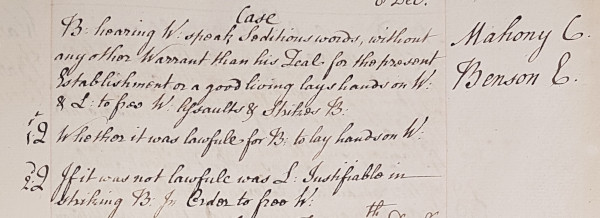 Case
B: hearing W: speak Seditious words, without
any other Warrant than his Zeal for the present
Establishment or a good living lays hands on W:
& L: to free W. Assaults & Strikes B:
Mahony C.
Benson E.
1st Q Whether it was lawfull for B: to lay hands on W:
2d Q If it was not lawfull was L: Justifiable in
striking B. In Order to free W: